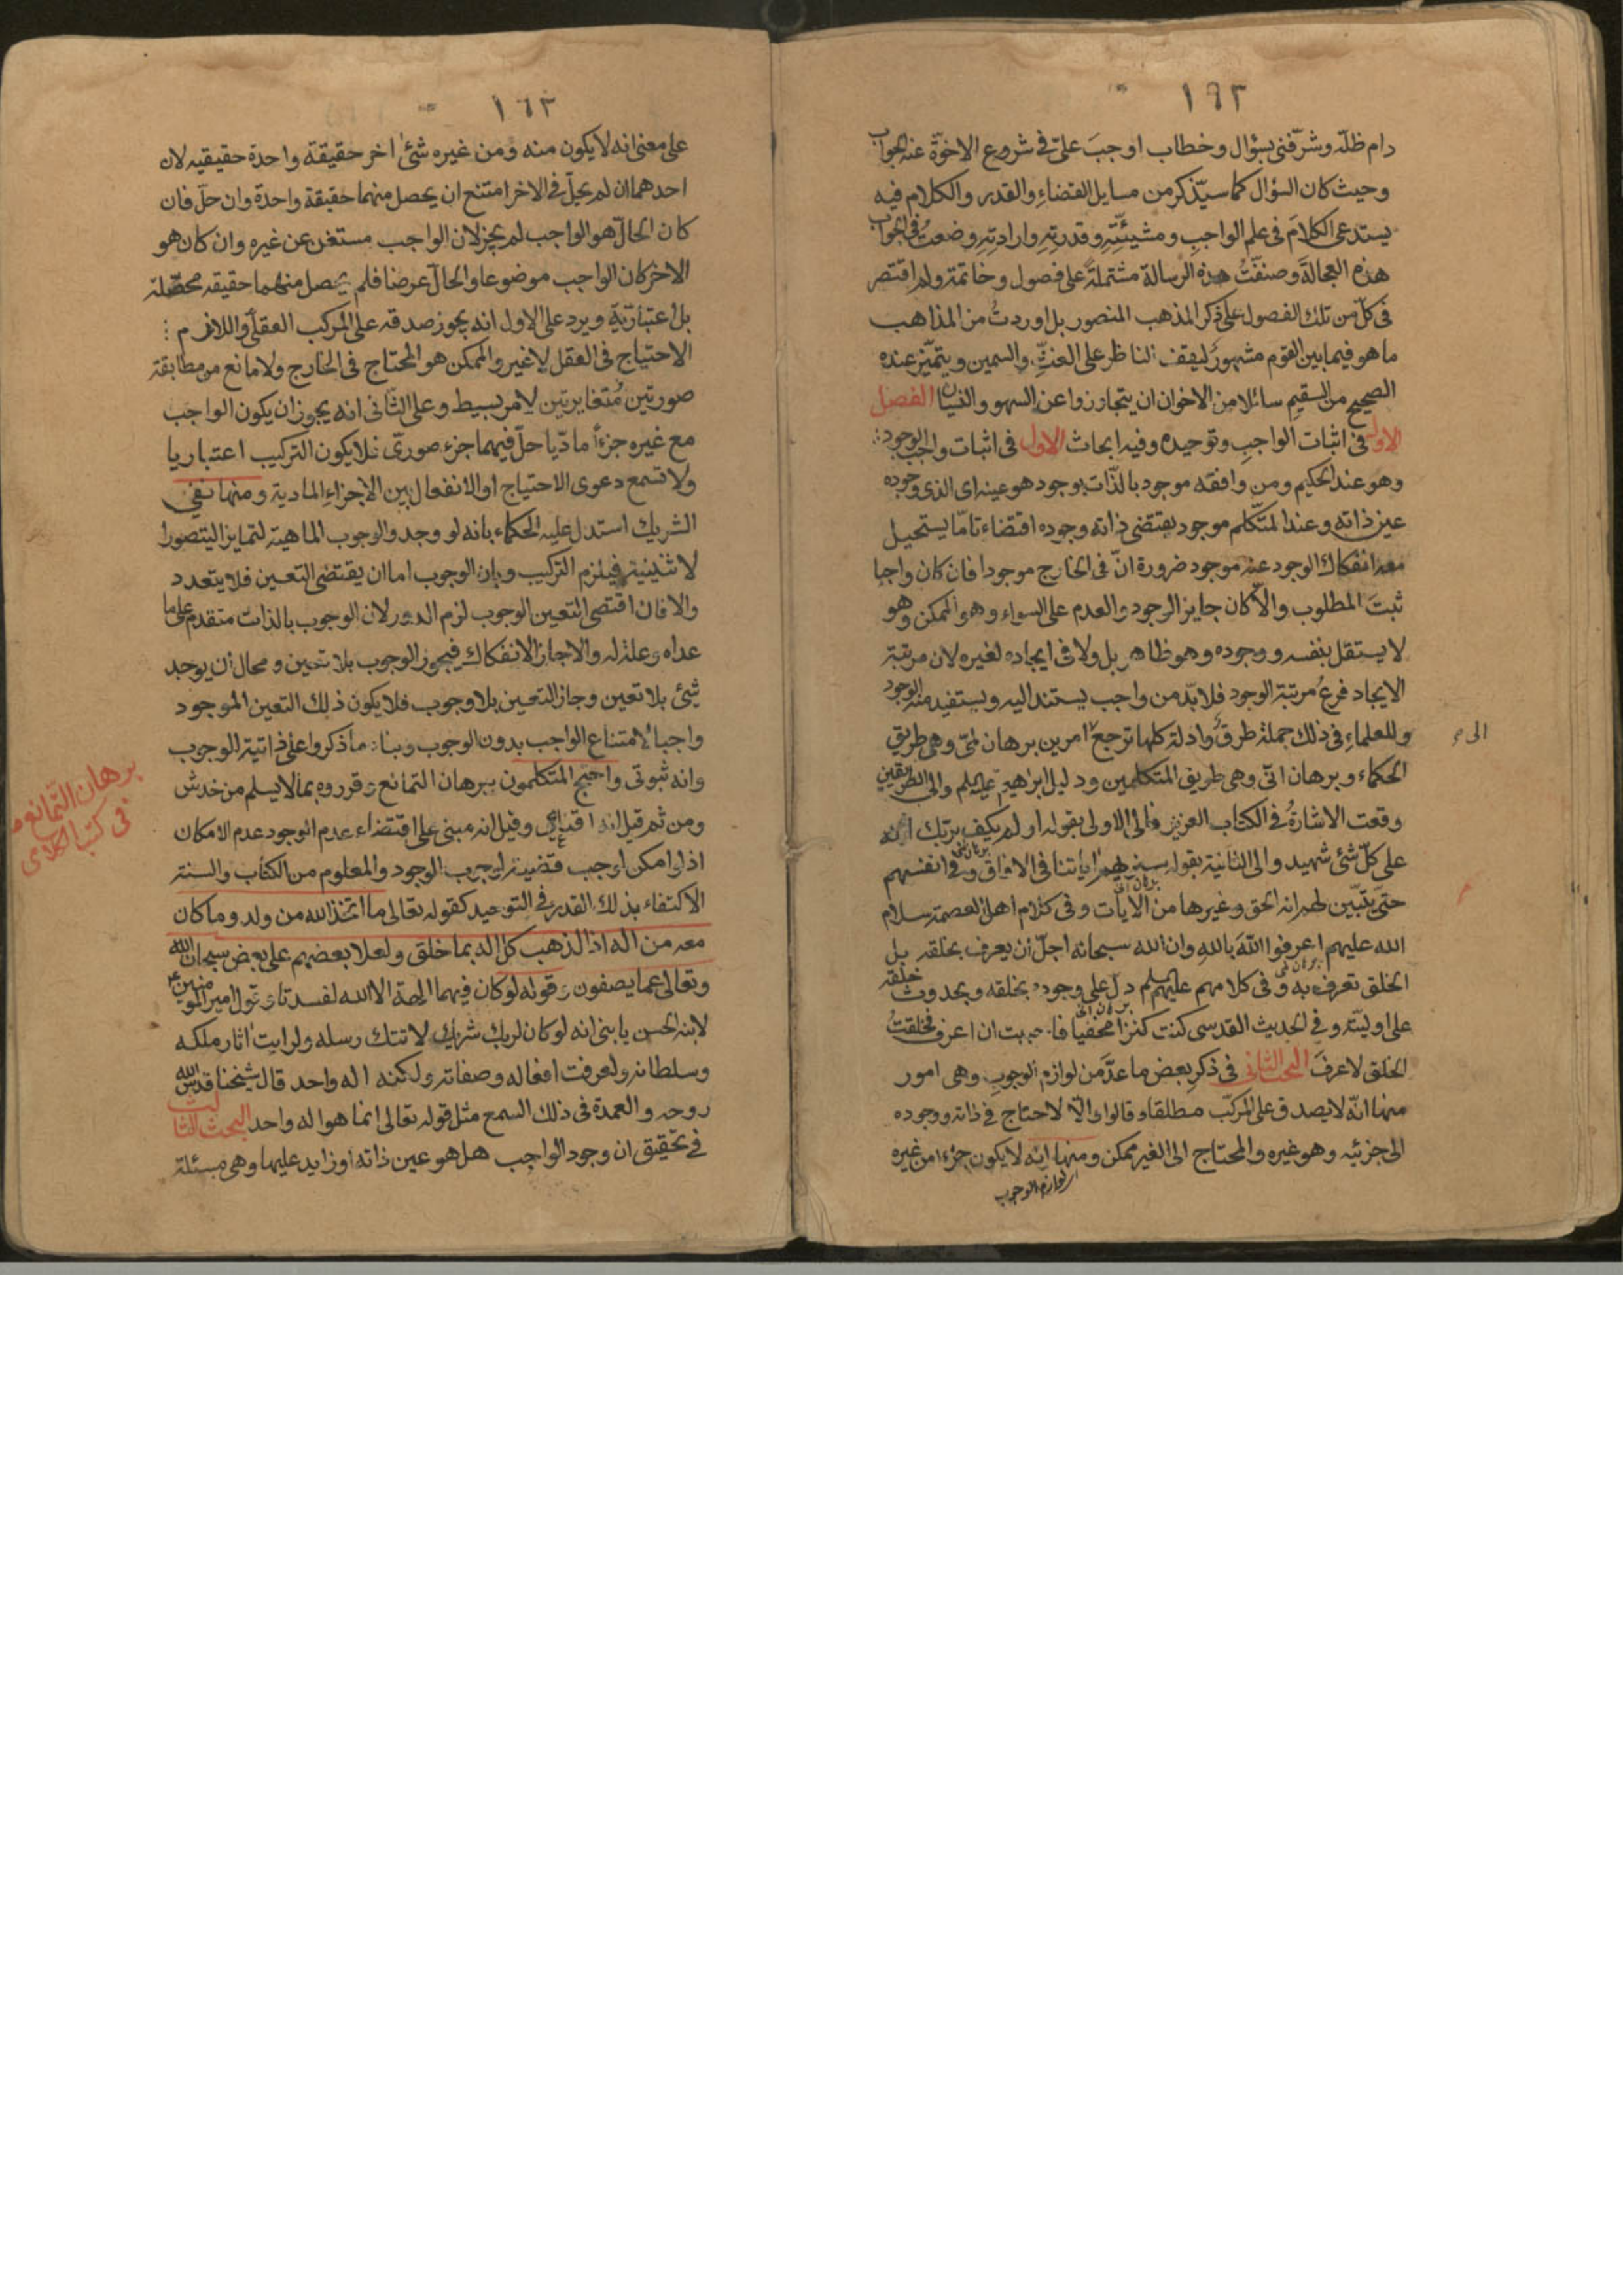 ١٦٢
دام ظلّه وشرّفنى بسؤال وخطاب اوجبَ علىّ فى شروع الاخوّة عنه الجواب
وحيث كان السؤال كما سيذكر من مسايل القضاءِ والقدر والكلام فيه
يستدعى الكلامَ فى علم الواجبِ ومشيئتِهِ وقدرتِهِ وارادتِهِ وضعتُ فى الجواب
هذه العجالةَ وصنفتُ هذه الرسالة مشتملةً على فصول وخاتمة ولم اقتصر
فى كلّ من تلك الفصول على ذكر المذهب المنصور بل اوردتُ من المذاهب
ما هو فيما بين القوم مشهورٌ ليقف الناظر على الغثِّ والسمين ويتميّز عنده
الصحيح من السقيم سائلا من الاخوان ان يتجاوزوا عن السهو والنسيان الفصل
الاول فى اثبات الواجبِ وتوحيده وفيه ابحاث الاول فى اثبات واجب الوجود
وهو عند الحكيم ومن وافقه موجود بالذّات بوجود هو عينه اى الذى وجوده
عين ذاته وعند المتكلم موجود يقتضى ذاته وجوده اقتضاء تامّا يستحيل
معه انفكاك الوجود عنه موجود ضرورة انّ فى الخارج موجودا فان كان واجبا
ثبتَ المطلوب والا كان جايز الوجود والعدم على السواء وهو الممكن وهو
لا يستقل بنفسه ووجوده وهو ظاهر بل ولا فى ايجاده لغيره لان مرتبة
الايجاد فرعُ مرتبة الوجود فلا بدّ من واجب يستند اليه ويستفيد منه الوجود
وللعلماءِ فى ذلك جملة طرق وادلة كلها ترجع امرين برهان لمىّ وهى طريق
الى
الحكماء وبرهان انّى وهى طريق المتكلمين ودليل ابراهيم عليه السلم والى الطريقين
وقعت الاشارةُ فى الكتاب العزيز فالى الاولى بقوله اولم يكف بربك انه
على كلّ شئ شهيد والى الثانية بقوله سنريهم اياتنا فى الافاق وفى انفسهم
حتّى يتبيّن لهم انه الحق وغيرها من الايات وفى كلام اهل العصمة سلام
برهان انى
الله عليهم اعرفوا اللهَ باللهِ وان الله سبحانه اجلّ ان يعرف بخلقه بل
الخلق تعرف به وفى كلامهم عليهم السلم دلّ على وجوده بخلقه وبحدوث خلقه
برهان انى
على اوليته وفى الحديث القدسى كنت كنزا مخفيا فاحببت ان اعرف فخلقتُ
الخلق لاعرفَ البحث الثانى فى ذكر بعض ما عدَّ من لوازم الوجوبِ وهى امور
منها انّه لا يصدق على المركّب مطلقا وقالوا والّا لاحتاج فى ذاته ووجوده
الى جزئيه وهو غيره والمحتاج الى الغير ممكن ومنها انّه لا يكون جزءا من غيره
لوازم الوجوب
١٦٣
على معنى انه لا يكون منه ومن غيره شئ اخر حقيقة واحدة حقيقيه لان
احدهما ان لم يحلّ فى الاخر امتنع ان يحصل منهما حقيقة واحدة وان حلّ فان
كان الحالّ هو الواجب لم يجز لان الواجب مستغن عن غيره وان كان هو
الاخر كان الواجب موضوعا والحالّ عرضا فلم يحصل منهما حقيقه محصّلة
بل اعتبارية ويرد على الاول انه يجوز صدقه على المركب العقلى واللازم
الاحتياج فى العقل لا غير والممكن هو المحتاج فى الخارج ولا مانع من مطابقة
صورتين مُتغايرتين لامر بسيط وعلى الثّانى انه يجوز ان يكون الواجب
مع غيره جزءاً مادّيا حلّ فيهما جزء صورىّ فلا يكون التركيب اعتباريا
ولا تسمع دعوى الاحتياج او الانفعال بين الاجزاءِ المادية ومنها نفى
الشريك استدل عليه الحكماء بانه لو وجد والوجوب الماهية لتمايزا ليتصور
الاثنينية فيلزم التركيب وبان الوجوب اما ان يقتضى التعين فلا يتعدد
والا فان اقتضى التعين الوجوب لزم الدور لان الوجوب بالذات متقدم على ما
عداه وعلة له والا جاز الانفكاك فيجوز الوجوب بلا تعين ومحال ان يوجد
شئ بلا تعين وجاز التعين بلا وجوب فلا يكون ذلك التعين الموجود
واجبا لامتناع الواجب بدون الوجوب وبناء ما ذكروا على ذاتية الوجوب
وانه ثبوتى واحتج المتكلمون ببرهان التمانع وقرروه بما لا يسلم من خدش
برهان التّمانع
فى كتب الكلامى
ومن ثم قيل انه اقناعى وقيل انه مبنى على اقتضاء عدم الوجود عدم الامكان
اذ لو امكن لوجب قضية لوجوب الوجود والمعلوم من الكتاب والسنة
الاكتفاء بذلك القدر فى التوحيد كقوله تعالى ما اتخذ الله من ولد وما كان
معه من اله اذا لذهب كل اله بما خلق ولعلا بعضهم على بعض سبحان الله
وتعالى عما يصفون وقوله لو كان فيهما الهة الا الله لفسدتا وقول امير المومنين
لابنه الحسن يا بنى انه لو كان لربك شريك لاتتك رسله ولرايت اثار ملكه
وسلطانه ولعرفت افعاله وصفاته ولكنه اله واحد قال شيخنا قدس الله
روحه والعمدة فى ذلك السمع مثل قوله تعالى انما هو اله واحد البحث الثالث
فى تحقيق ان وجود الواجب هل هو عين ذاته او زايد عليها وهى مسئلة